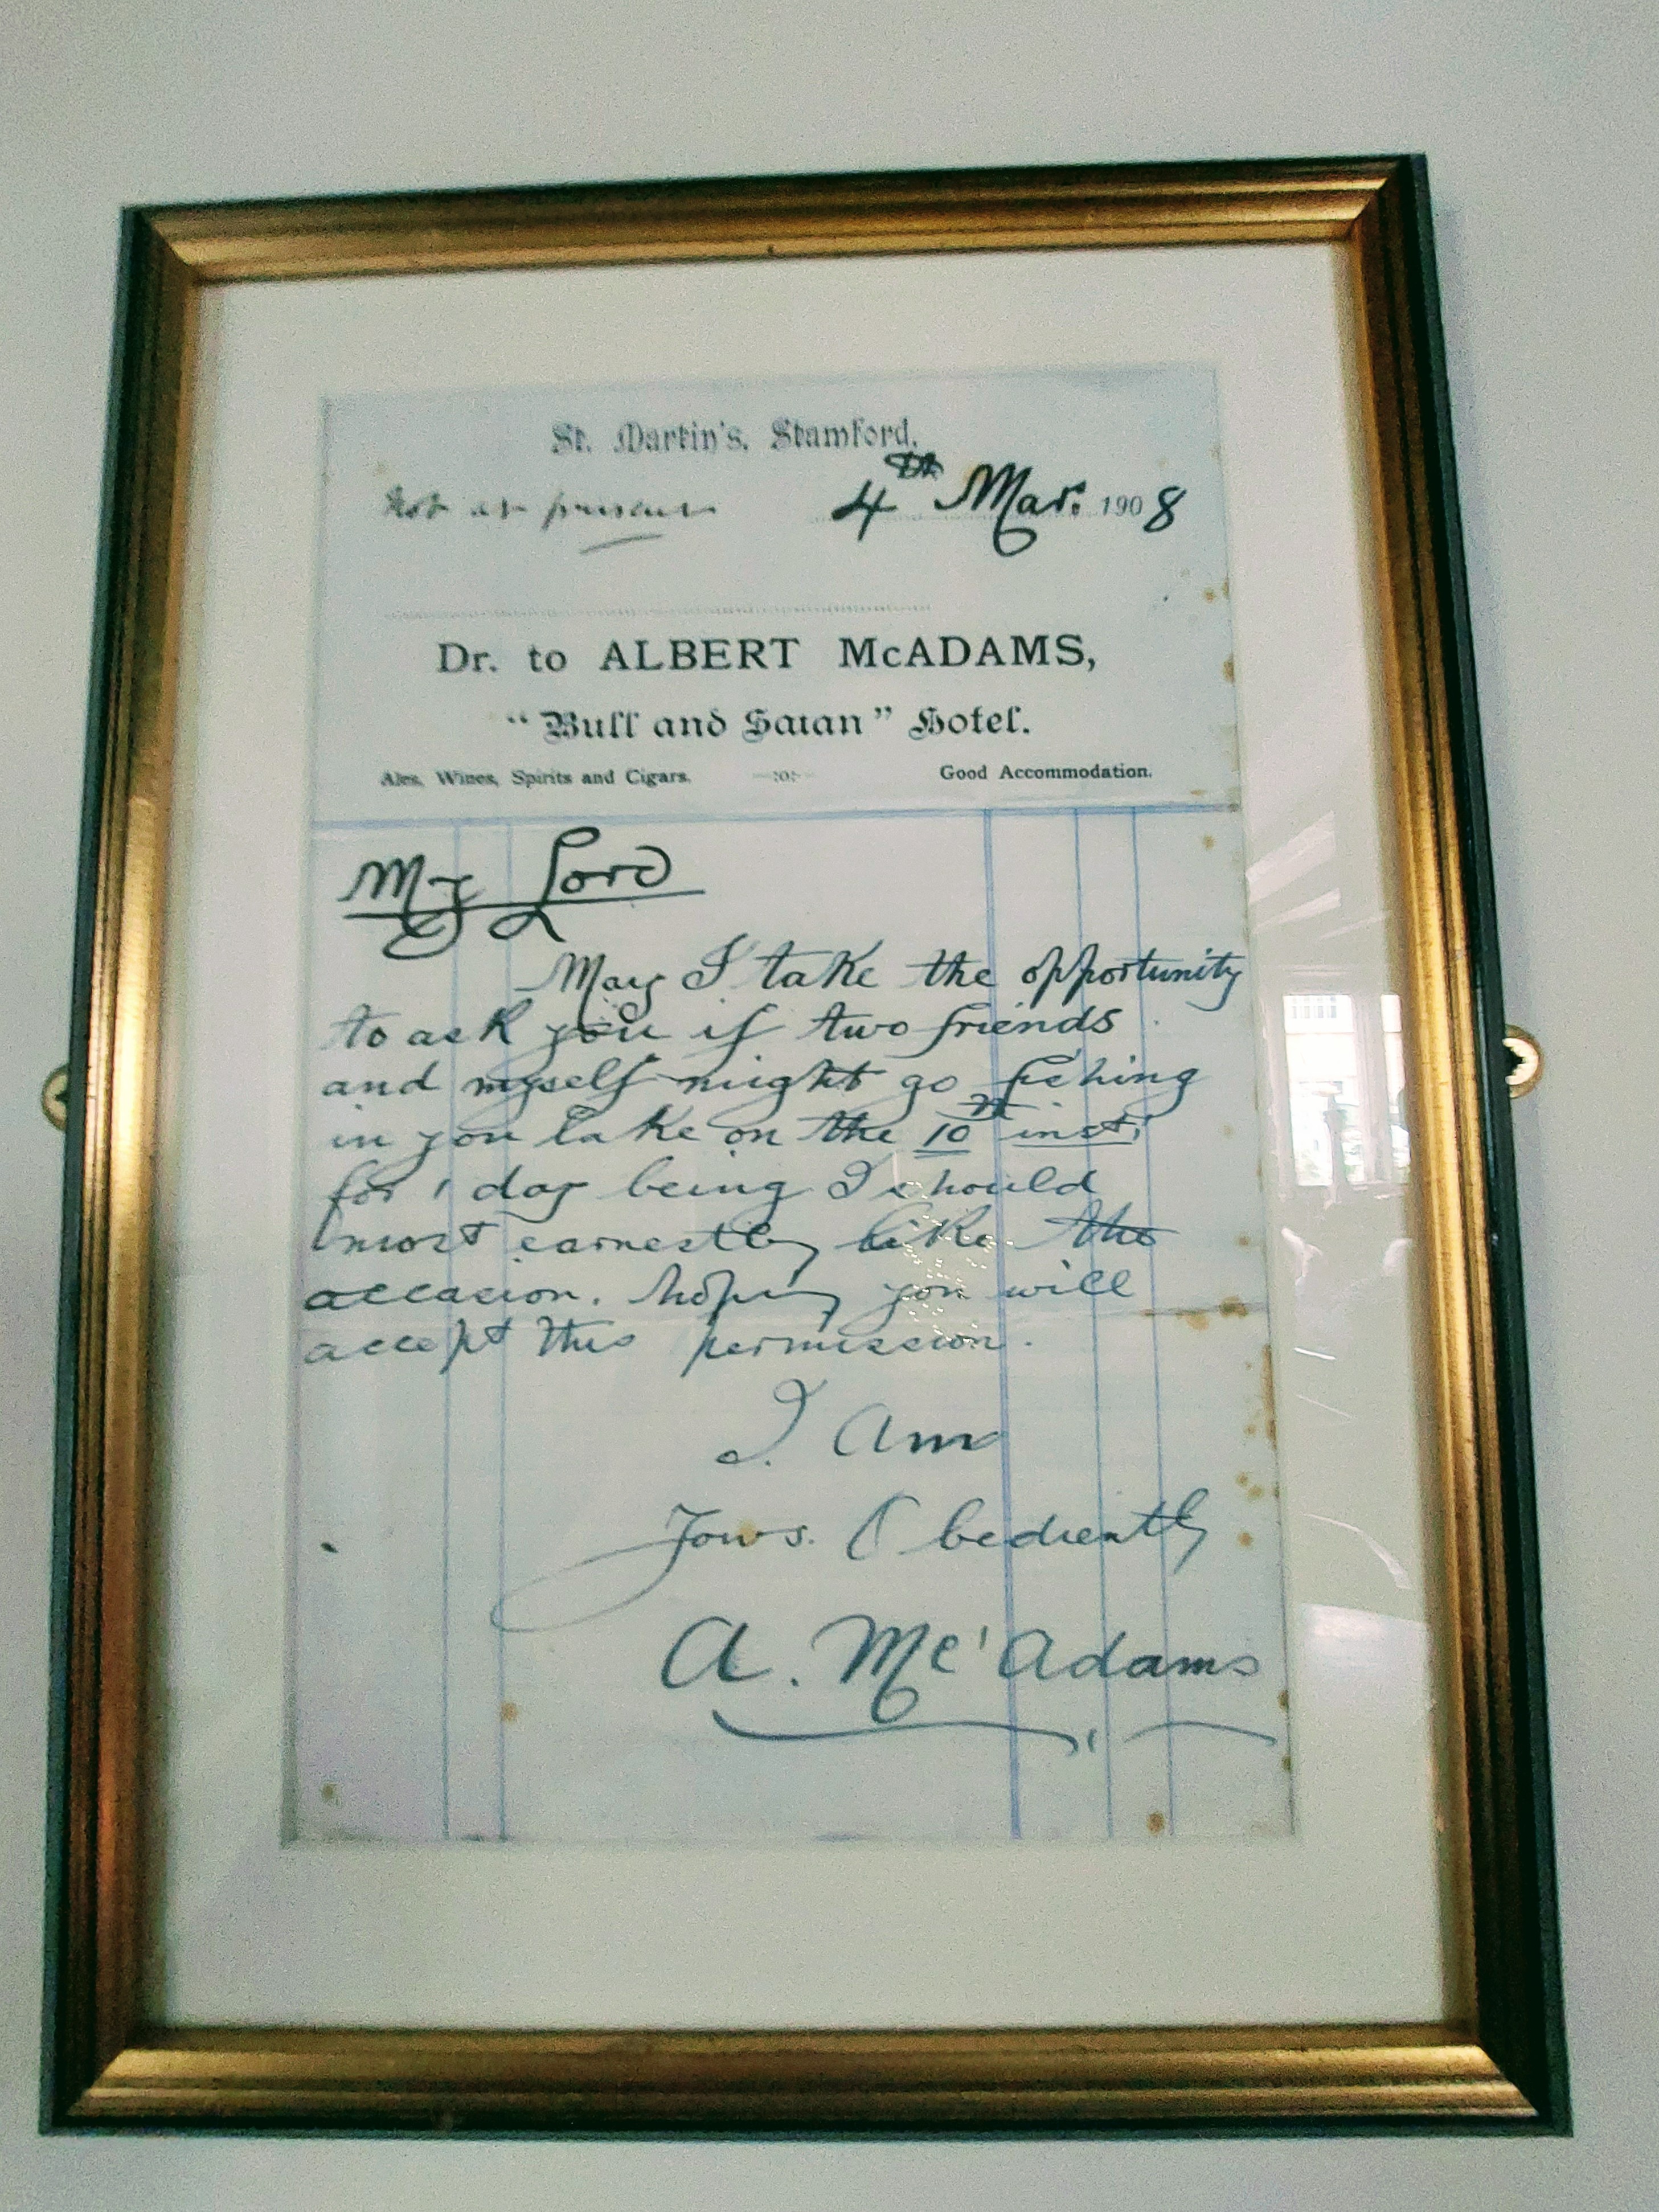 St. Martin's, Stamford,
Not at present
4th Mar. 1908
Dr. to ALBERT McADAMS,
"Bull and Swan" Hotel.
Ales, Wines, Spirits and Cigars. —:o:— Good Accommodation.
My Lord
May I take the opportunity
to ask you if two friends
and myself might go fishing
in you lake on the 10th inst;
for 1 day being I should
most earnestly like the
occasion. hoping you will
accept this permission.
I Am
Yours. Obediently
A. Mc'Adams